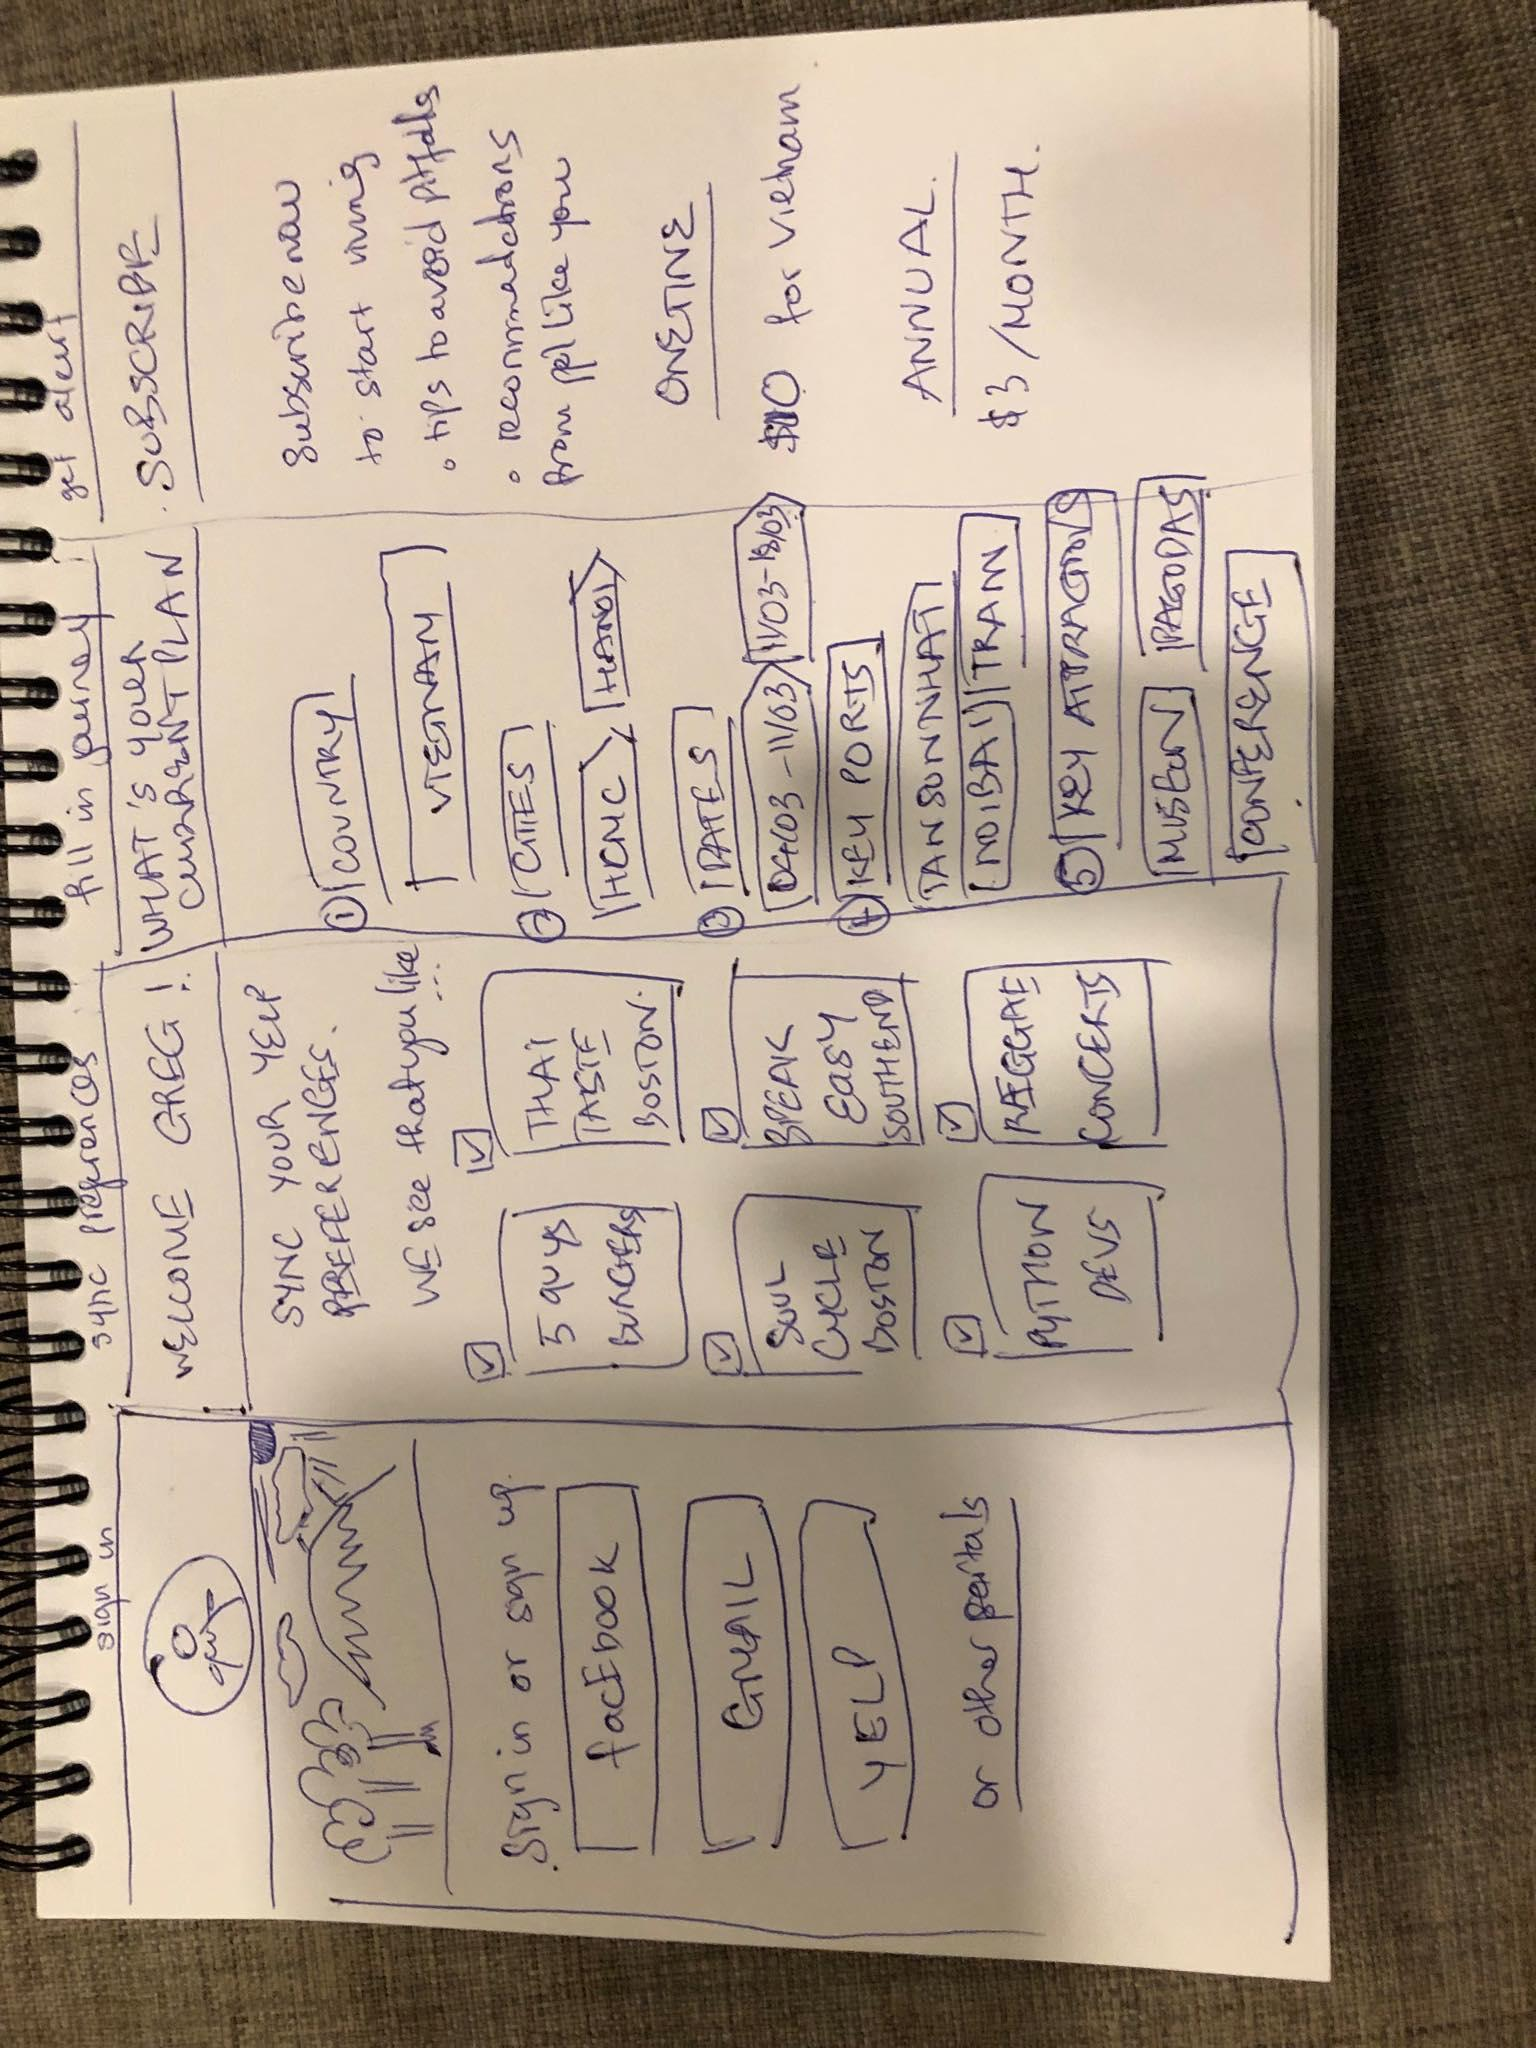 sign in
sign in or sign up
facebook
GMAIL
YELP
or other portals
sync preferences
WELCOME GREG!
SYNC YOUR YELP
PREFERENCES.
WE see that you like...
5 guys
BURGERS
THAI
TASTE
BOSTON.
SOUL
CYCLE
BOSTON
SPEAK
EASY
SOUTHEND
PYTHON
DEVS
RAEGGAE
CONCERTS
fill in journey
WHAT'S YOUR
CURRENT PLAN
1 COUNTRY
VIETNAM
2 CITIES
HCMC
HANOI
3 DATES
04/03-11/03
11/03-18/03
4 KEY PORTS
TANSONNHAT
NOIBAI
TRAM
5 KEY ATTRACTIONS
MUSEUM
PAGODAS
CONFERENCE
get alert
SUBSCRIBE
Subscribe now
to start viving
• tips to avoid pitfalls
• recommadations
from ppl like you
ONETIME
$10 for vietnam
ANNUAL.
$3/MONTH.